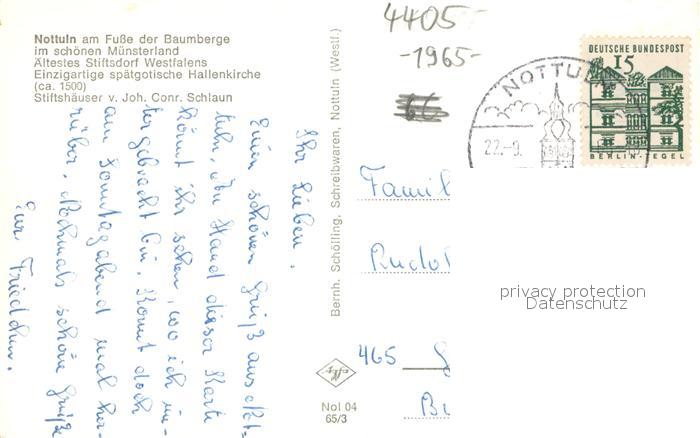 Nottuln am Fuße der Baumberge
im schönen Münsterland
Ältestes Stiftsdorf Westfalens
Einzigartige spätgotische Hallenkirche
(ca. 1500)
Stiftshäuser v. Joh. Conr. Schlaun
Ihr Lieben,
Einen schönen Gruß aus Not-
tuln. An Hand dieser Karte
könnt ihr sehen, wo ich un-
tergebracht bin. Kommt doch
am Sonntagabend mal her-
rüber. Nochmals schöne Grüße
Eur Friedchen.
Bernh. Schölling, Schreibwaren, Nottuln (Westf.)
Nol 04
65/3
4405
-1965-
66
NOTTUL
22.-9.
DEUTSCHE BUNDESPOST
15
BERLIN-TEGEL
Famil
Rudol
465 G
Bu
privacy protection
Datenschutz